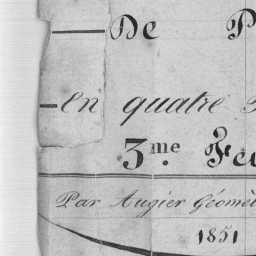 De P
En quatre
3.me Fe
Par Augier Géomèt
1851